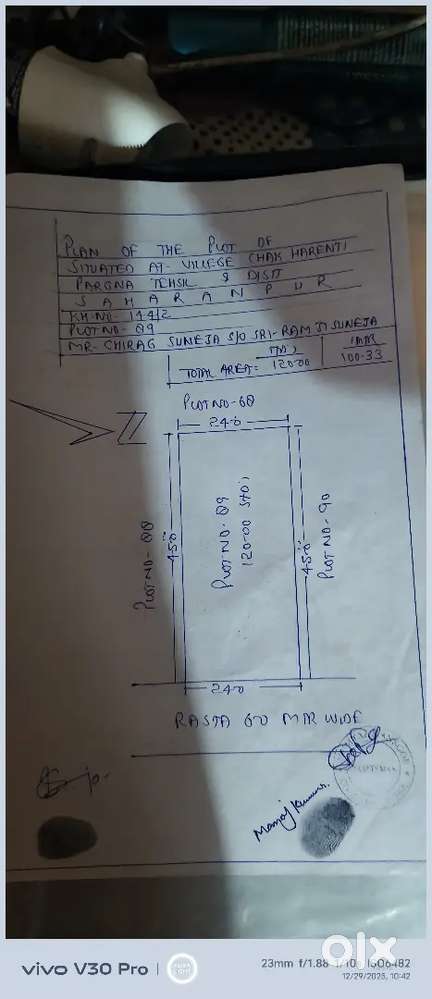 PLAN OF THE PLOT OF
SITUATED AT- VILLEGE CHAK HARENTI
PARGNA TEHSIL & DISTT
SAHARANPUR
KH-NO- 144/2
PLOT NO- 89
MR- CHIRAG SUNEJA S/O SRI- RAM JI SUNEJA
TOTAL AREA= 120-00 100-33
PLOT NO- 68
24-0
PLOT NO- 88
45-0
PLOT NO- 89
120-00
45-0
PLOT NO- 90
24-0
RASTA 6-0 MTR WIDE
Manoj Kumar
olx
vivo V30 Pro
23mm f/1.88
12/29/2025, 10:42